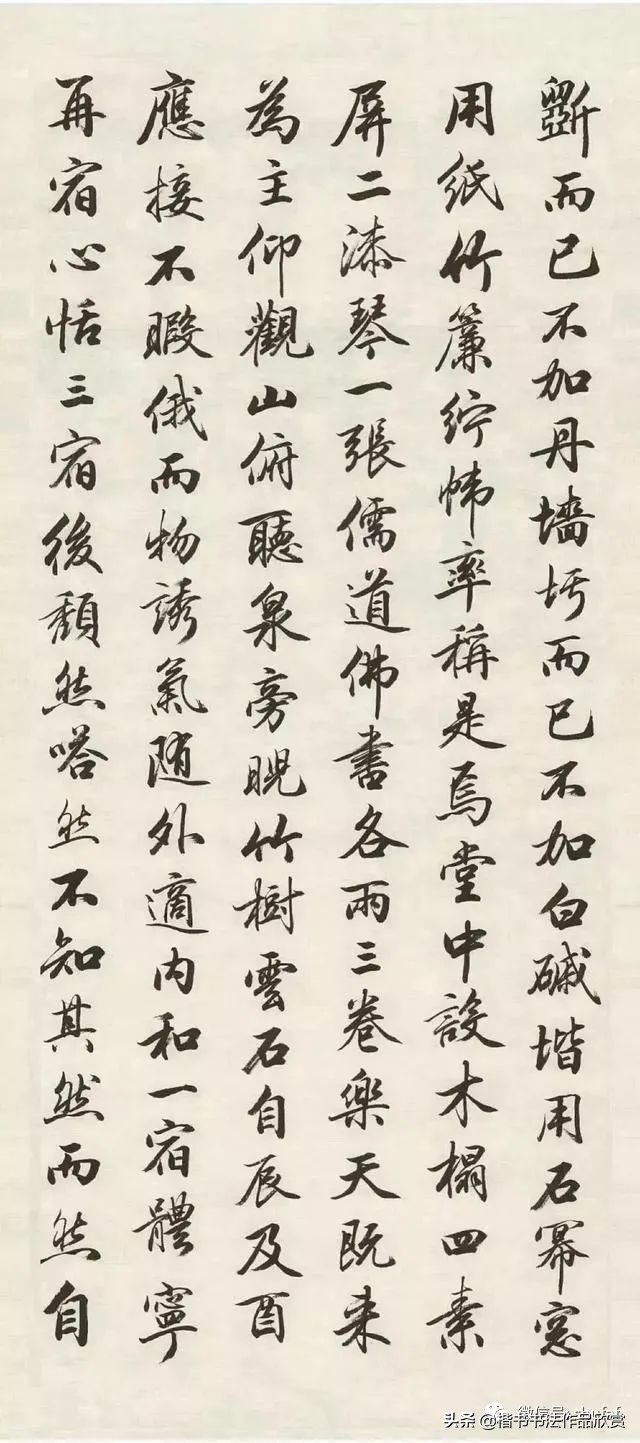 斵而已不加丹墻圬而已不加白磩堦用石冪窓
用紙竹簾紵幃率稱是焉堂中設木榻四素
屏二漆琴一張儒道佛書各兩三卷樂天既来
為主仰觀山俯聽泉旁睨竹樹雲石自辰及酉
應接不暇俄而物誘氣随外適内和一宿體寧
再宿心恬三宿後頹然嗒然不知其然而然自
头条@楷书书法作品欣赏